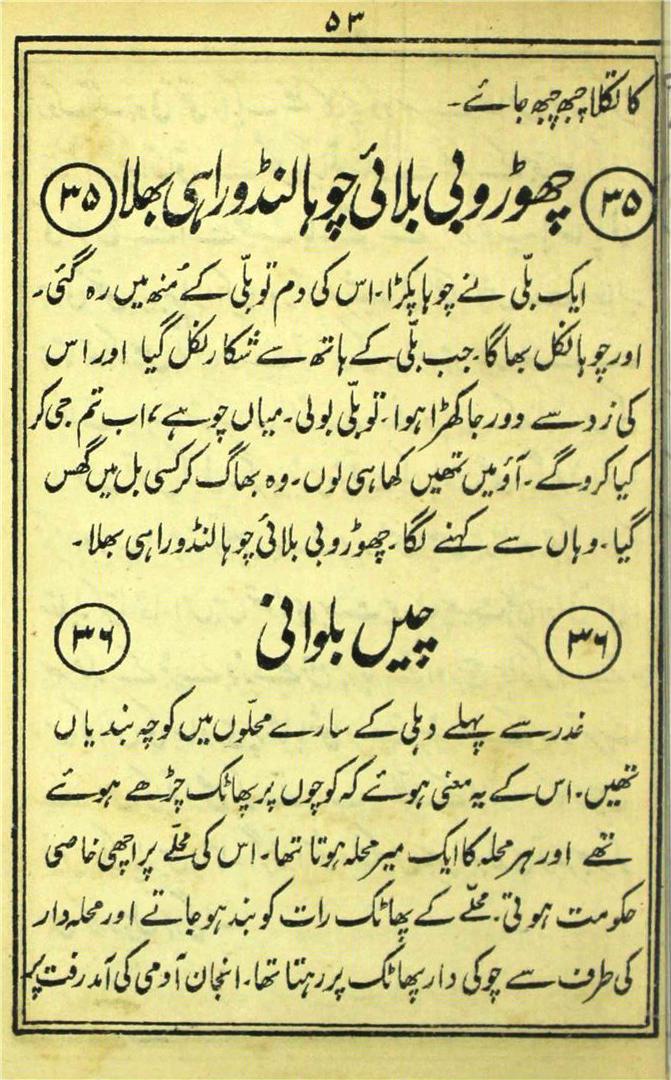 ۵۳
کا تکلا چبھ چبھ جائے۔
۳۵ چھوڑو بی بلائی چوہا لنڈورا ہی بھلا ۳۵
ایک بلّی نے چوہا پکڑا۔ اس کی دم تو بلّی کے مُنھ میں رہ گئی۔
اور چوہا نکل بھاگا۔ جب بلّی کے ہاتھ سے شکار نکل گیا اور اس
کی زد سے دور جا کھڑا ہوا۔ تو بلّی بولی۔ میاں چوہے، اب تم جی کر
کیا کروگے۔ آؤ میں تمھیں کھا ہی لوں۔ وہ بھاگ کر کسی بل میں گھس
گیا۔ وہاں سے کہنے لگا۔ چھوڑو بی بلائی چوہا لنڈورا ہی بھلا۔
۳۶ چیں بلوانی ۳۶
غدر سے پہلے دہلی کے سارے محلّوں میں کوچہ بندیاں
تھیں۔ اس کے یہ معنی ہوئے کہ کوچوں پر پھاٹک چڑھے ہوئے
تھے اور ہر محلہ کا ایک میر محلہ ہوتا تھا۔ اس کی محلّے پر اچھی خاصی
حکومت ہوتی۔ محلّے کے پھاٹک رات کو بند ہو جاتے اور محلہ دار
کی طرف سے چوکی دار پھاٹک پر رہتا تھا۔ انجان آدمی کی آمد رفت پر